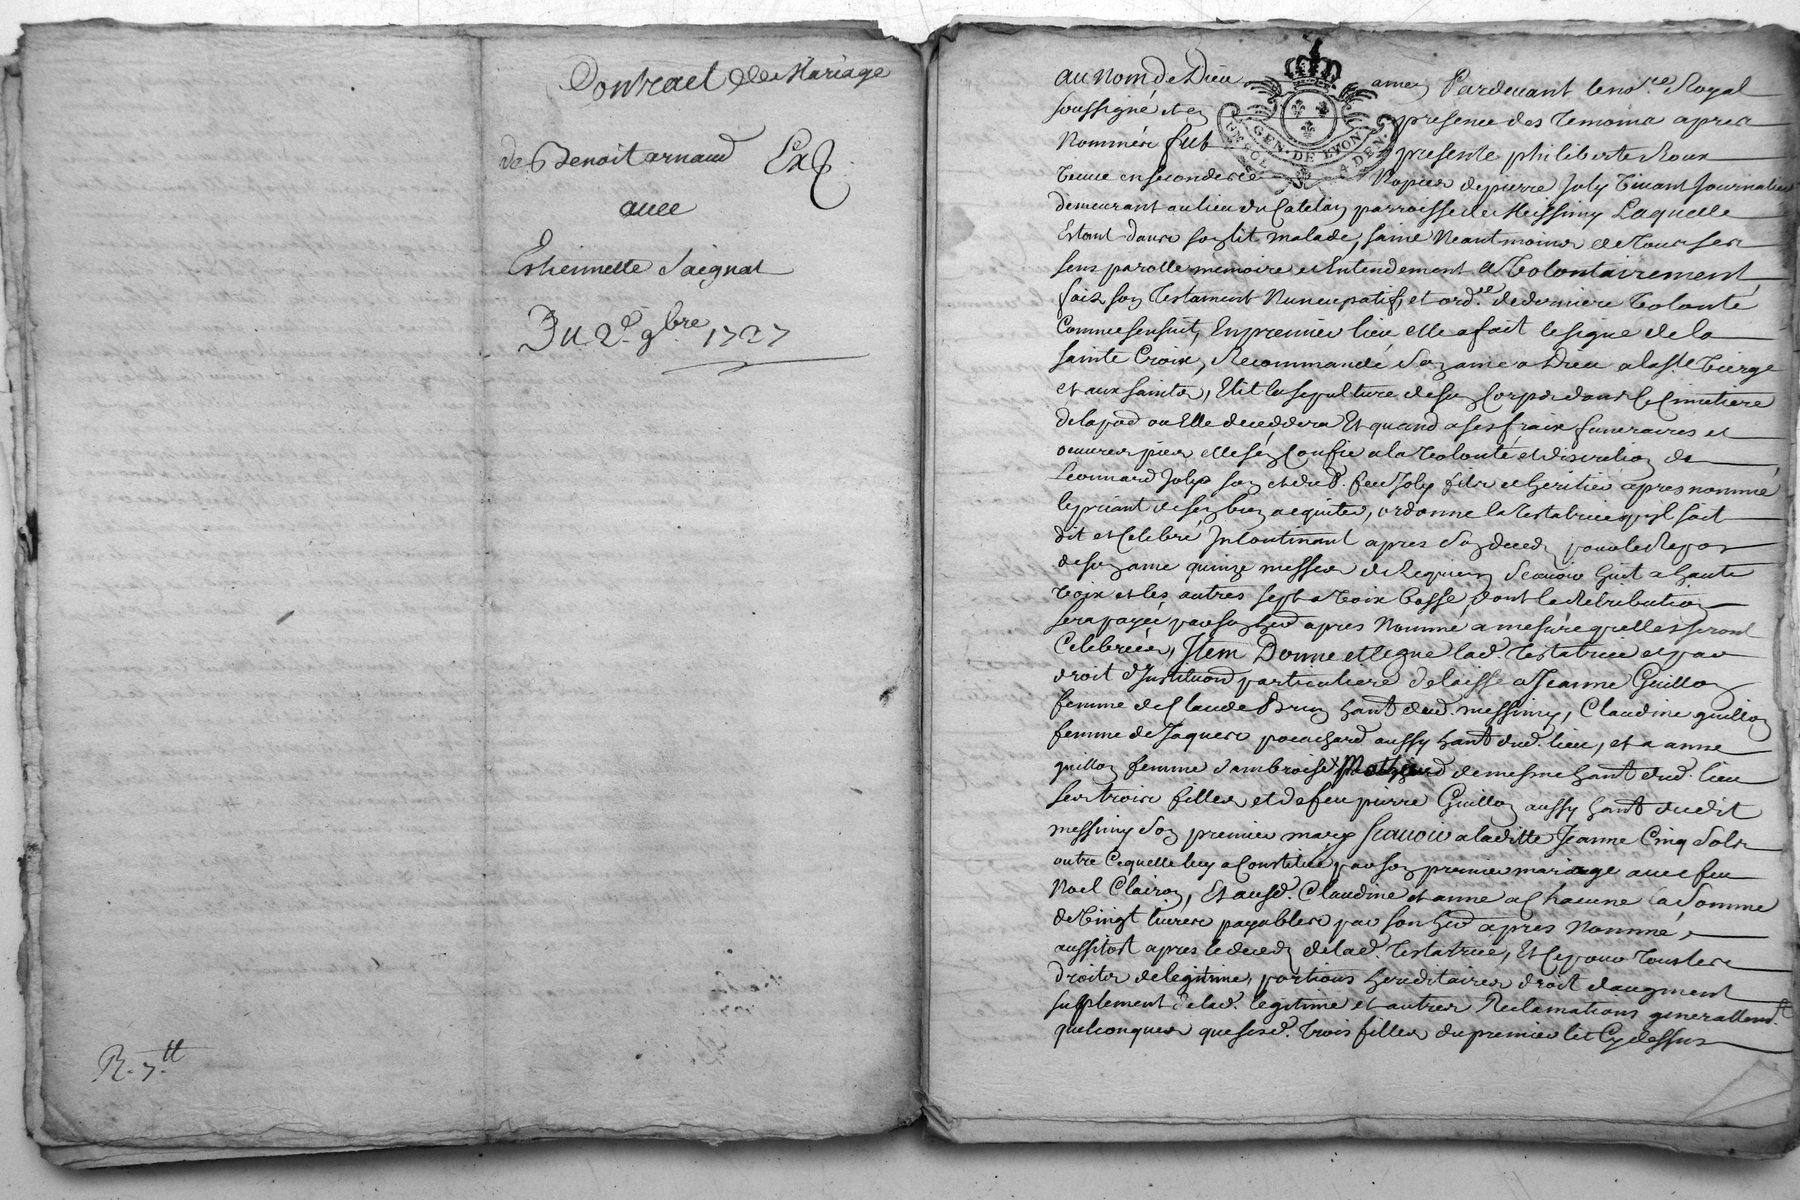 Contract de Mariage
de Benoit arnaud Exp.
avec
Estiennette Saignat
Du 2e. 9bre. 1727
R. 7.tt
au nom de Dieu amen Pardevant le no.re Royal
soussigné et en presence des temoins apres
Nommés fut presente philiberte Roux
veuve en seconde nopces de pierre Joly vivant Journalier
demeurant au lieu du Catelan parroisse de Messimy Laquelle
Estant dans son lit malade, saine Neantmoins de tous ses
sens parolle memoire et Entendement a volontairement
fait son Testament Nuncupatif, et ord.ce de derniere volonté
Comme sensuit, En premier lieu elle a fait le signe de la
sainte Croix, Recommandé son ame a Dieu a la ste vierge
et aux saints, Elit la sepulture de son Corps dans le Cimetiere
de la pad ou Elle deceddera Et quand a ses fraix funeraires et
oeuvres pies elle s'en Confie a la volonté et discretion de
Leonnard Joly son et dud. feu Joly fils et heritier apres nommé
le priant de s'en bien acquiter, ordonne la testatrice qu'il soit
dit et Celebré Incontinant apres son deced pour le Repos
de son ame quinze messes de Requiem scavoir huit a haute
voix et les autres sept a voix basse, dont la retribution
sera payée par son hed apres Nommé a mesure quelles seront
Celebrées, Item Donne et legue lad. Testatrice et par
droit d'Institution particuliere delaisse a Jeanne Guillon
femme de Claude Brun hant dud. messimy, Claudine guillon
femme de Jaques pouchard aussy hant dud. lieu, et a anne
guillon femme d'ambroise de mesme hant dud. lieu
ses trois filles et de feu pierre Guillon aussy hant dudit
messimy son premier mary scavoir a laditte Jeanne Cinq sols
outre Ce quelle luy a Constitué par son premier mariage avec feu
Noel Clairon, Et ausd. Claudine et anne a Chacune la somme
de vingt livres payables par son hed apres Nommé,
aussitost apres le deced de lad. Testatrice, Et Ce pour tous les
droits de legitime, portions hereditaires droit d'augment
supplement de lad. legitime et autres Reclamations generallem.t
quelconques que sesd. trois filles du premier lit Cy dessus